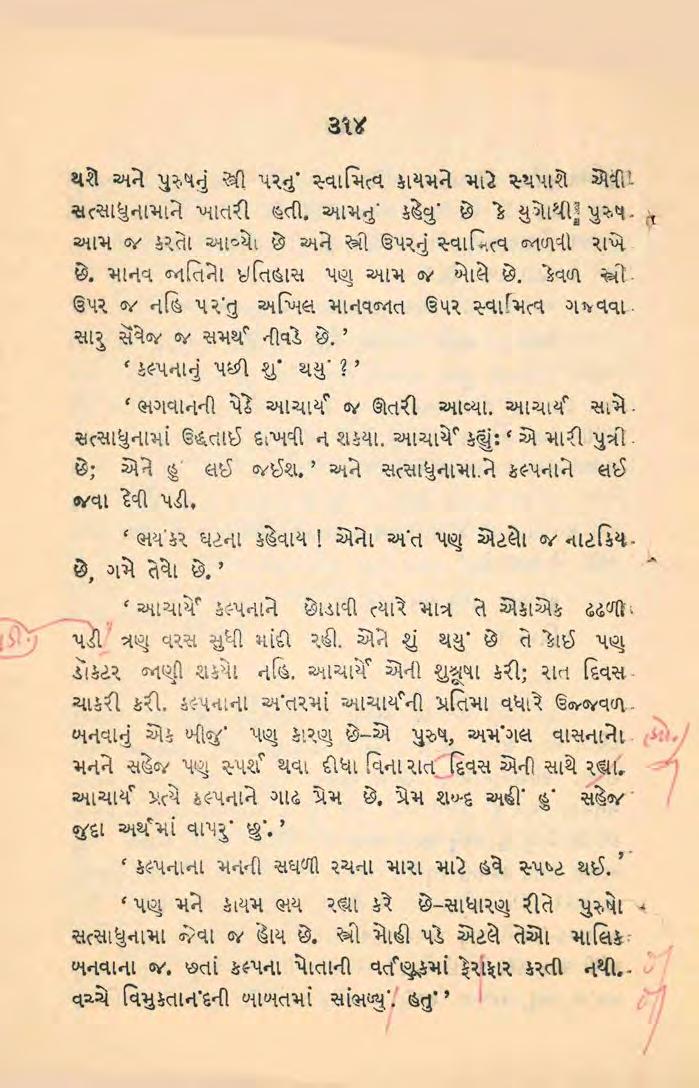 ૩૧૪
થશે અને પુરુષનું સ્ત્રી પરનું સ્વામિત્વ કાયમને માટે સ્થપાશે એવી
સત્સાધુનામાને ખાતરી હતી. આમનું કહેવું છે કે યુગોથી પુરુષ
આમ જ કરતો આવ્યો છે અને સ્ત્રી ઉપરનું સ્વામિત્વ જાળવી રાખે
છે. માનવ જાતિનો ઇતિહાસ પણ આમ જ બોલે છે. કેવળ સ્ત્રી
ઉપર જ નહિ પરંતુ અખિલ માનવજાત ઉપર સ્વામિત્વ ગજવવા
સારુ સૅવેજ જ સમર્થ નીવડે છે.’
‘કલ્પનાનું પછી શું થયું ?’
‘ભગવાનની પેઠે આચાર્ય જ ઊતરી આવ્યા. આચાર્ય સામે
સત્સાધુનામાં ઉદ્ધતાઈ દાખવી ન શકયા. આચાર્યે કહ્યું: ‘એ મારી પુત્રી
છે; એને હું લઈ જઈશ.’ અને સત્સાધુનામા.ને કલ્પનાને લઈ
જવા દેવી પડી.
‘ભયંકર ઘટના કહેવાય ! એનો અંત પણ એટલો જ નાટકિય
છે, ગમે તેવો છે.’
‘આચાર્યે કલ્પનાને છોડાવી ત્યારે માત્ર તે એકાએક ઢઢળી
પડી ત્રણ વરસ સુધી માંદી રહી. એને શું થયું છે તે કોઈ પણ
ડૉકટર જાણી શકયો નહિ. આચાર્યે એની શુશ્રૂષા કરી; રાત દિવસ
ચાકરી કરી. કલ્પનાના અંતરમાં આચાર્યની પ્રતિમા વધારે ઉજ્જવળ
બનવાનું એક બીજું પણ કારણ છે–એ પુરુષ, અમંગલ વાસનાનો
મનને સહેજ પણ સ્પર્શ થવા દીધા વિના રાત દિવસ એની સાથે રહ્યા.
આચાર્ય પ્રત્યે કલ્પનાને ગાઢ પ્રેમ છે. પ્રેમ શબ્દ અહીં હું સહેજ
જુદા અર્થમાં વાપરું છું.’
‘કલ્પનાના મનની સઘળી રચના મારા માટે હવે સ્પષ્ટ થઈ.’
‘પણ મને કાયમ ભય રહ્યા કરે છે–સાધારણ રીતે પુરુષો
સત્સાધુનામા જેવા જ હોય છે. સ્ત્રી મોહી પડે એટલે તેઓ માલિક
બનવાના જ. છતાં કલ્પના પોતાની વર્તણૂકમાં ફેરાફાર કરતી નથી.
વચ્ચે વિમુકતાનંદની બાબતમાં સાંભળ્યું. હતું’